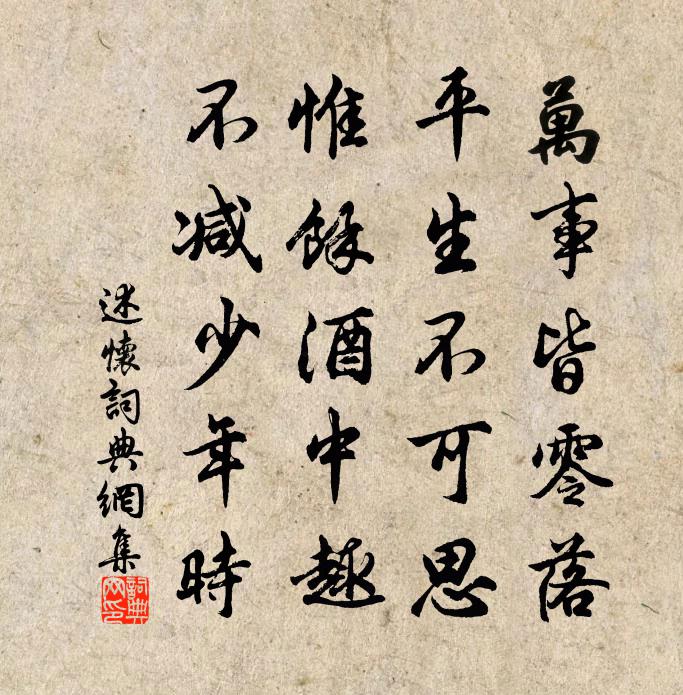 萬事皆零落
平生不可思
惟餘酒中趣
不減少年時
述懷詞典網集
詞典網印